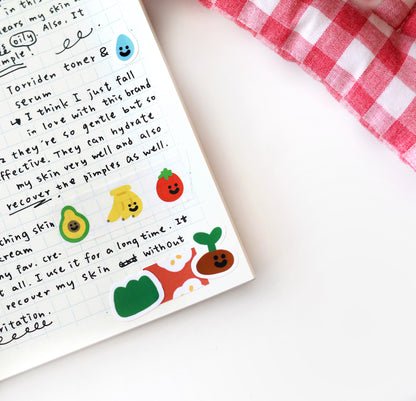 in this
lears my skin
oily Also. It
mple.
Torriden toner &
serum
→ I think I just fall
in love with this brand
z they're so gentle but so
ffective. They can hydrate
my skin very well and also
recover the pimples as well.
ching skin
cream
ny fav. cre.
t all. I use it for a long time. It
recover my skin without
ritation.